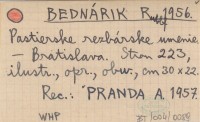 BEDNÁRIK R. 1956.
Pastierske rezbárske umenie.
— Bratislava. Stron 223,
ilustr., opr., obw., cm 30 x 22.
Rec.: PRANDA A. 1957.
WHP